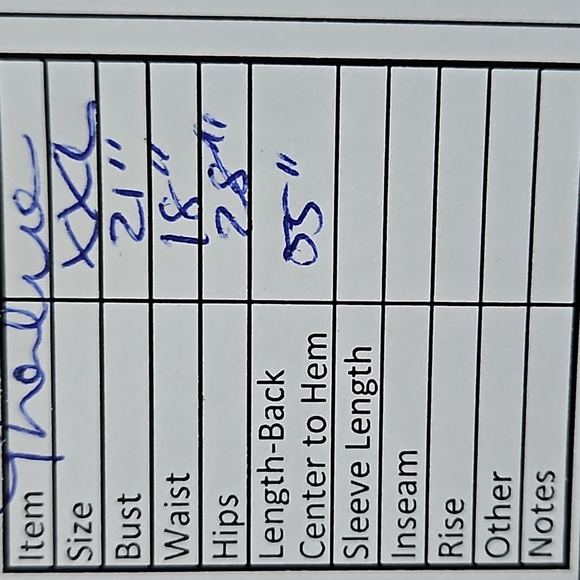 Item
Size XXL
Bust 21"
Waist 18"
Hips 28"
Length-Back
Center to Hem 55"
Sleeve Length
Inseam
Rise
Other
Notes